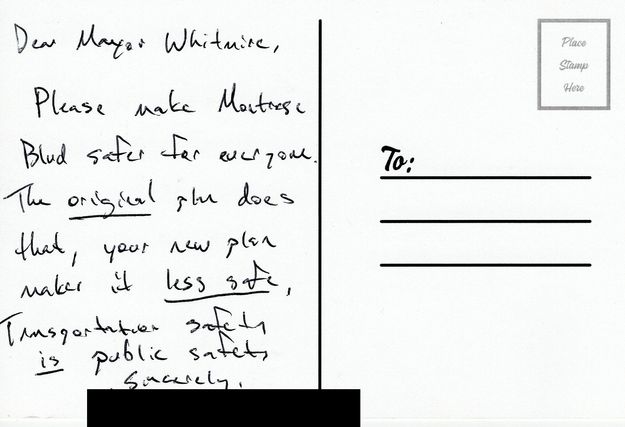 Dear Mayor Whitmire,
Please make Montrose
Blvd safer for everyone.
The original plan does
that, your new plan
makes it less safe,
Transportation safety
is public safety
Sincerely,
Place
Stamp
Here
To: